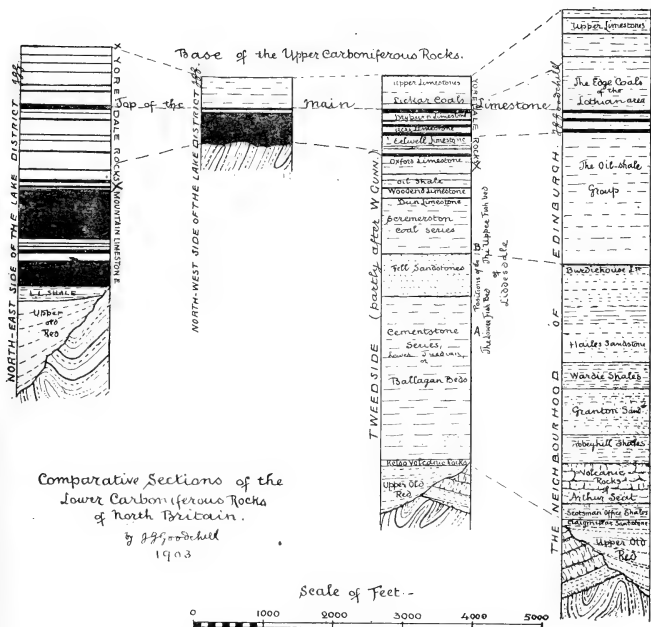 Base of the Upper Carboniferous Rocks.
Top of the Main Limestone
NORTH-EAST SIDE OF THE LAKE DISTRICT
YOREDALE ROCKS
MOUNTAIN LIMESTONE
L.L. SHALE
Upper
old
Red
NORTH-WEST SIDE OF THE LAKE DISTRICT
TWEEDSIDE (partly after W GUNN)
YOREDALE ROCKS
Upper Limestones
Lickar Coals
Dryburn Limestone
Limestone
Eelwell Limestone
Oxford Limestone
Oil Shale
Wooden Limestone
Dun Limestone
Scremerston
coal series
Fell Sandstones
Cementstone
Series,
or
Ballagan Beds
Kelso Volcanic Rocks
Upper Old
Red
Positions of the
A The Lower Fish Bed
B The Upper Fish bed
of
Liddesdale
THE NEIGHBOURHOOD OF EDINBURGH. JGGoodchild
Upper Limestones
The Edge Coals
of the
Lothian area
The Oil-shale
Group
Burdiehouse
Hailes Sandstone
Wardie Shales
Granton Sand
Abbeyhill Shales
Volcanic
Rocks
of
Arthur Seat
Scotsman Office Shales
Craigmillar Sandstone
Upper Old
Red
Comparative Sections of the
Lower Carboniferous Rocks
of North Britain.
by JGGoodchild
1903
Scale of Feet.-
0 1000 2000 3000 4000 5000